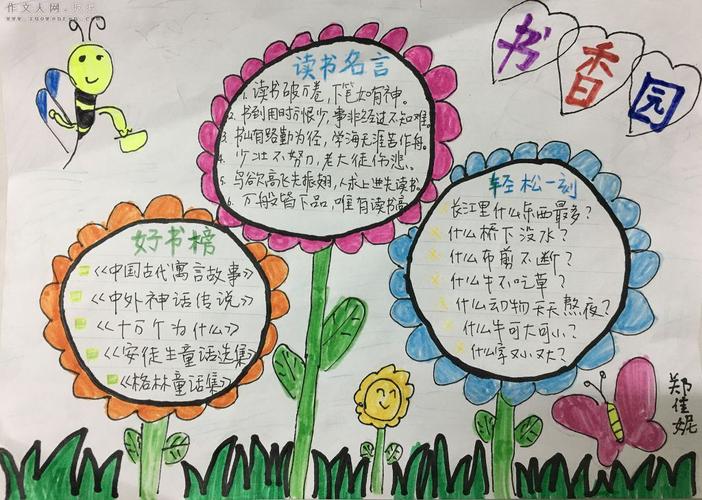 作文人网
www.zuowenren.com
书香园
读书名言
1. 读书破万卷,下笔如有神。
2. 书到用时方恨少,事非经过不知难。
3. 书山有路勤为径,学海无涯苦作舟。
4. 少壮不努力,老大徒伤悲。
5. 鸟欲高飞先振翅,人求上进先读书。
6. 万般皆下品,唯有读书高
好书榜
《中国古代寓言故事》
《中外神话传说》
《十万个为什么》
《安徒生童话选集》
《格林童话集》
轻松一刻
长江里什么东西最多?
什么桥下没水?
什么布剪不断?
什么牛不吃草?
什么动物天天熬夜?
什么牛可大可小?
什么字又小又大?
郑佳妮